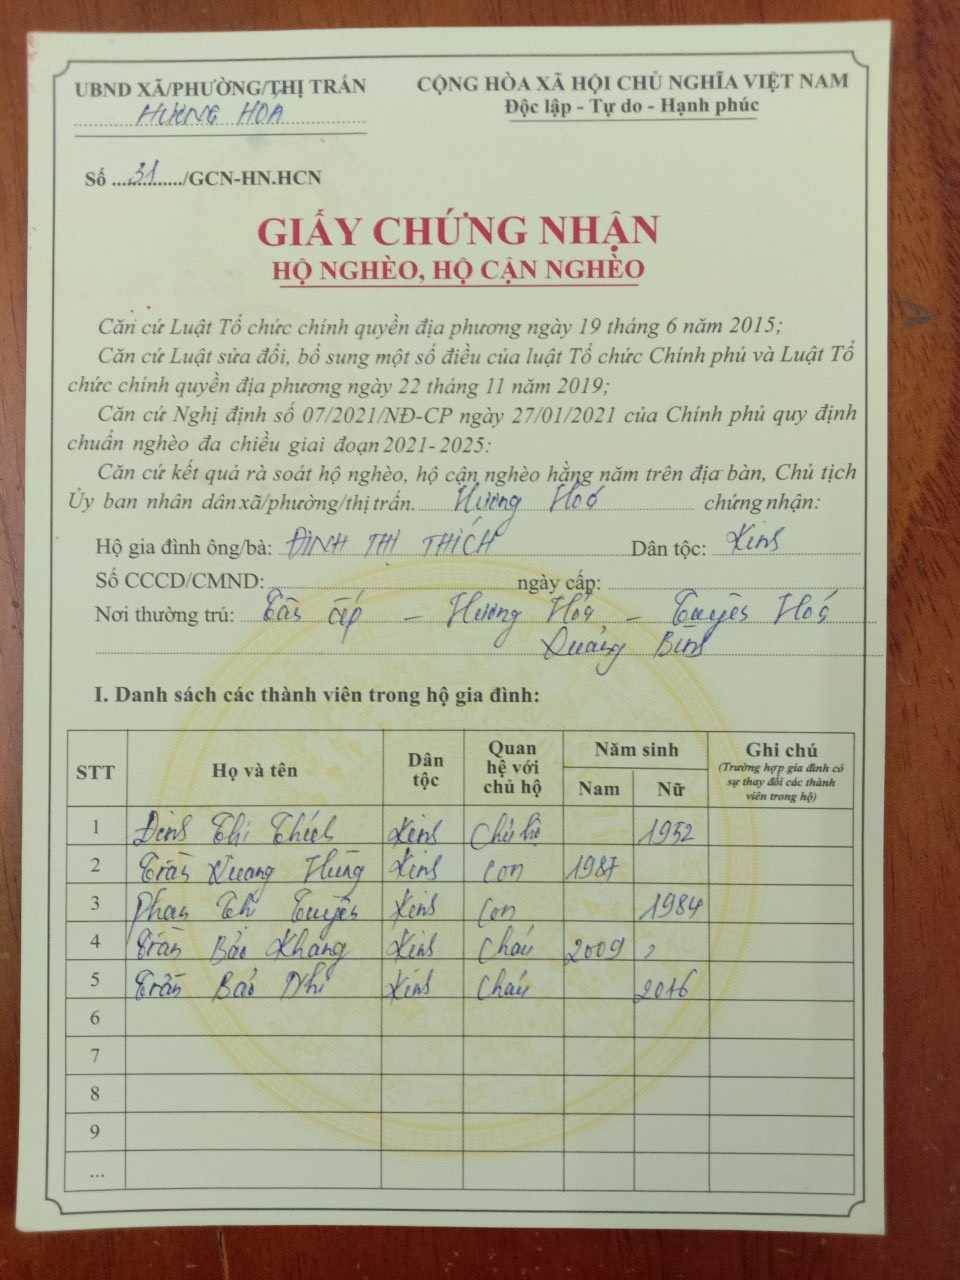 UBND XÃ/PHƯỜNG/THỊ TRẤN
HƯƠNG HÓA
CỘNG HÒA XÃ HỘI CHỦ NGHĨA VIỆT NAM
Độc lập - Tự do - Hạnh phúc
Số 31/GCN-HN.HCN
GIẤY CHỨNG NHẬN
HỘ NGHÈO, HỘ CẬN NGHÈO
Căn cứ Luật Tổ chức chính quyền địa phương ngày 19 tháng 6 năm 2015;
Căn cứ Luật sửa đổi, bổ sung một số điều của luật Tổ chức Chính phủ và Luật Tổ
chức chính quyền địa phương ngày 22 tháng 11 năm 2019;
Căn cứ Nghị định số 07/2021/NĐ-CP ngày 27/01/2021 của Chính phủ quy định
chuẩn nghèo đa chiều giai đoạn 2021-2025:
Căn cứ kết quả rà soát hộ nghèo, hộ cận nghèo hằng năm trên địa bàn, Chủ tịch
Ủy ban nhân dân xã/phường/thị trấn. Hương Hoá chứng nhận:
Hộ gia đình ông/bà: ĐINH THỊ THÍCH Dân tộc: Kinh
Số CCCD/CMND: ngày cấp:
Nơi thường trú: Tân ấp - Hương Hóa - Tuyên Hoá
Quảng Bình
I. Danh sách các thành viên trong hộ gia đình:
STT Họ và tên Dân tộc Quan hệ với chủ hộ Năm sinh Nam Nữ Ghi chú (Trường hợp gia đình có sự thay đổi các thành viên trong hộ)
1 Đinh Thị Thích Kinh Chủ hộ 1952
2 Trần Quang Hùng Kinh con 1987
3 Phan Thị Tuyên Kinh con 1984
4 Trần Bảo Khang Kinh Cháu 2009
5 Trần Bảo Nhi Kinh Cháu 2016
6
7
8
9
...